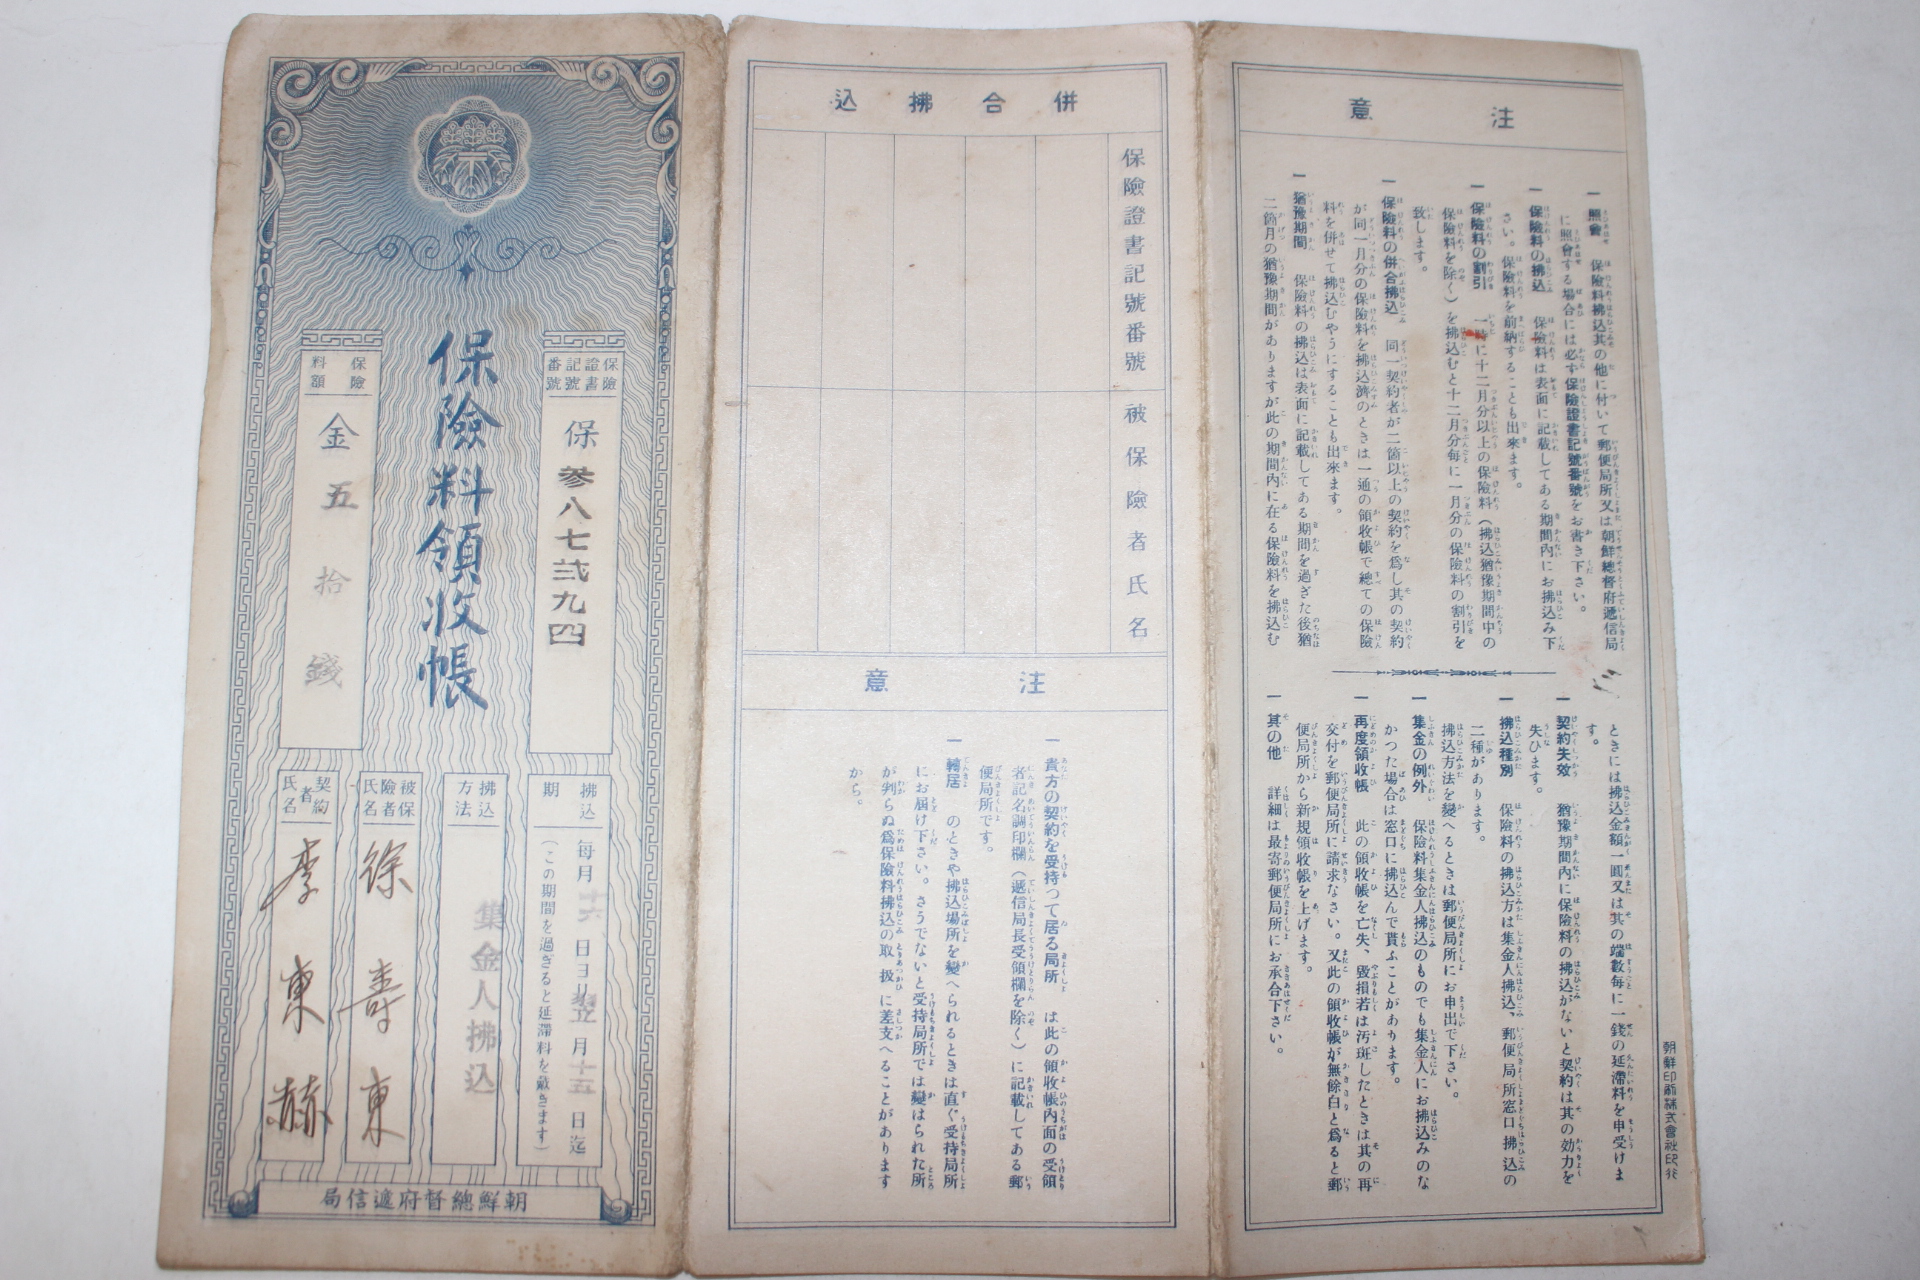 注意
一 照會 保險料拂込其の他に付いて郵便局所又は朝鮮總督府遞信局
に照會する場合には必ず保險證書記號番號をお書き下さい。
一 保險料の拂込 保險料は表面に記載してある期間內にお拂込み下
さい。保險料を前納することも出來ます。
一 保險料の割引 一時に十二月分以上の保險料（拂込猶豫期間中の
保險料を除く）を拂込むと十二月分每に一月分の保險料の割引を
致します。
一 保險料の併合拂込 同一契約者が二箇以上の契約を爲し其の契約
が同一月分の保險料を拂込濟のときは一通の領收帳で總ての保險
料を併せて拂込むやうにすることも出來ます。
一 猶豫期間 保險料の拂込は表面に記載してある期間を過ぎた後猶
二箇月の猶豫期間がありますが此の期間內に在る保險料を拂込む
ときには拂込金額一圓又は其の端數每に一錢の延滯料を申受けま
す。
一 契約失效 猶豫期間內に保險料の拂込がないと契約は其の効力を
失ひます。
一 拂込種別 保險料の拂込方は集金人拂込、郵便局所窓口拂込の
二種があります。
拂込方法を變へるときは郵便局所にお申出で下さい。
一 集金の例外 保險料集金人拂込のものでも集金人にお拂込みのな
かつた場合は窓口に拂込んで貰ふことがあります。
一 再度領收帳 此の領收帳を亡失、毀損若は汚斑したときは其の再
交付を郵便局所に請求なさい。又此の領收帳が無餘白と爲ると郵
便局所から新規領收帳を上げます。
一 其の他 詳細は最寄郵便局所にお承合下さい。
朝鮮印刷株式會社印行
併合拂込
保險證書記號番號
被保險者氏名
注意
一 貴方の契約を受持つて居る局所 は此の領收帳內面の受領
者記名調印欄（遞信局長受領欄を除く）に記載してある郵
便局所です。
一 轉居 のときや拂込場所を變へられるときは直ぐ受持局所
にお届け下さい。さうでないと受持局所では變はられた所
が判らぬ爲保險料拂込の取扱に差支へることがあります
から。
保險料領收帳
保險證書記號番號
保參八七貳九四
保險料額
金五拾錢
拂込期
每月十六日ヨリ翌月十五日迄
（この期間を過ぎると延滯料を戴きます）
拂込方法
集金人拂込
被保險者氏名
徐壽東
契約者氏名
李東赫
朝鮮總督府遞信局